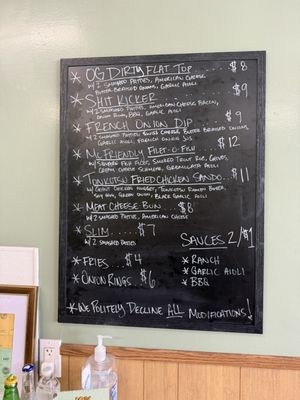 * OG Dirty Flat Top $8
w/ 2 Smashed Patties, American Cheese
Butter Braised Onions, Garlic Aioli
* Shit Kicker $9
w/ 2 Smashed Patties, American Cheese, Bacon,
Onion Ring, BBQ, Garlic Aioli
* French Onion Dip $9
w/ 2 Smashed Patties, Swiss Cheese, Butter Braised Onions,
Garlic Aioli, French Onion
* McFriendly Filet-O-Fish $12
w/ Fish Filet, Smoked Trout Roe,
Cream Cheese American,
* Tonkotsu Fried Chicken Sando... $11
w/ Giant Chicken Nugget, Tonkotsu Ramen Butter
Egg, Green Onion, Black Garlic Aioli
* Meat Cheese Bun... $8
w/ 2 Smashed Patties, American Cheese
* Slim... $7
w/ 2 Smashed Patties
Sauces 2/$1
* Fries... $4
* Ranch
* Onion Rings. $6
* Garlic Aioli
* BBQ
* We Politely Decline ALL Modifications!